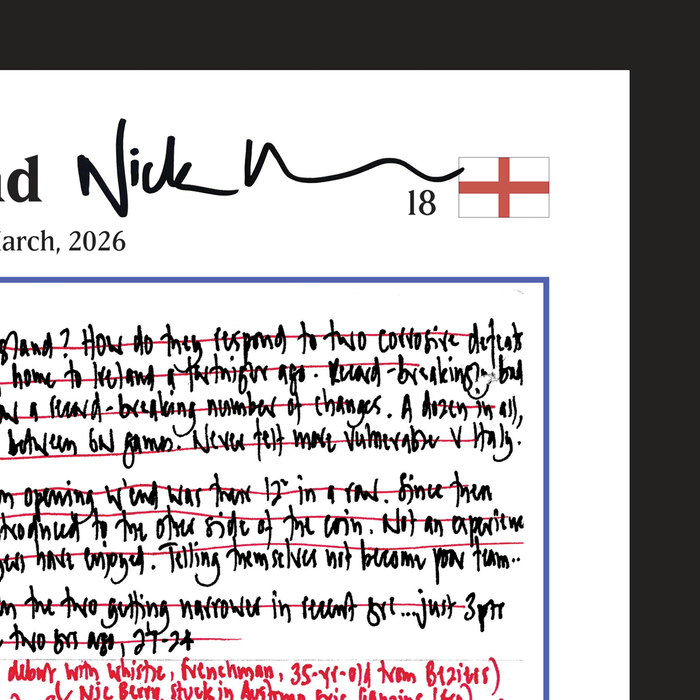 nd Nick
18
March, 2026
gland? How do they respond to two corrosive defeats
home to Ireland a fortnight ago. Record-breaking bad
a record-breaking number of changes. A dozen in all,
between 6N games. Never felt more vulnerable V Italy.
opening w'end was their 12th in a row. Since then
to the other side of the coin. Not an experience
have enjoyed. Telling themselves not become poor team..
the two getting narrower in recent yrs...just 3pts
two yrs ago, 27-24
debut with whistle, Frenchman, 35-yr-old from Beziers)
Nic Berry, stuck in Austr